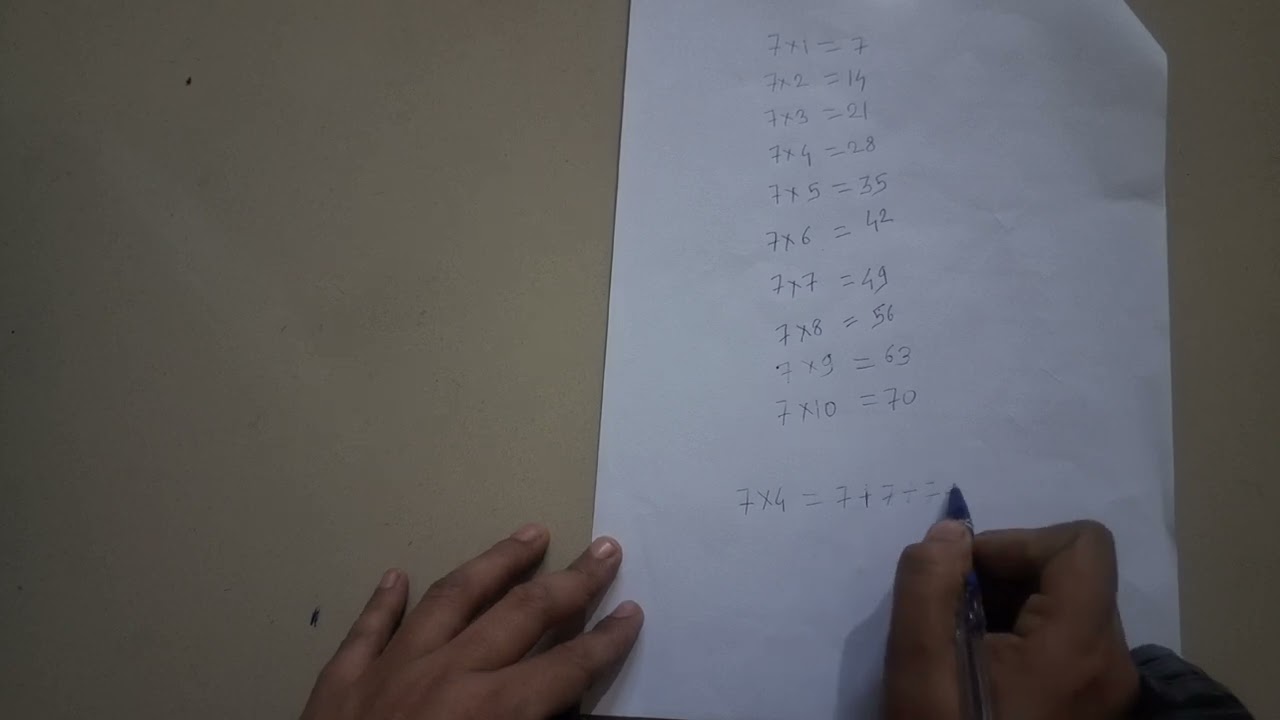 7×1 = 7
7×2 = 14
7×3 = 21
7×4 = 28
7×5 = 35
7×6 = 42
7×7 = 49
7×8 = 56
7×9 = 63
7×10 = 70
7×4 = 7+7+7+